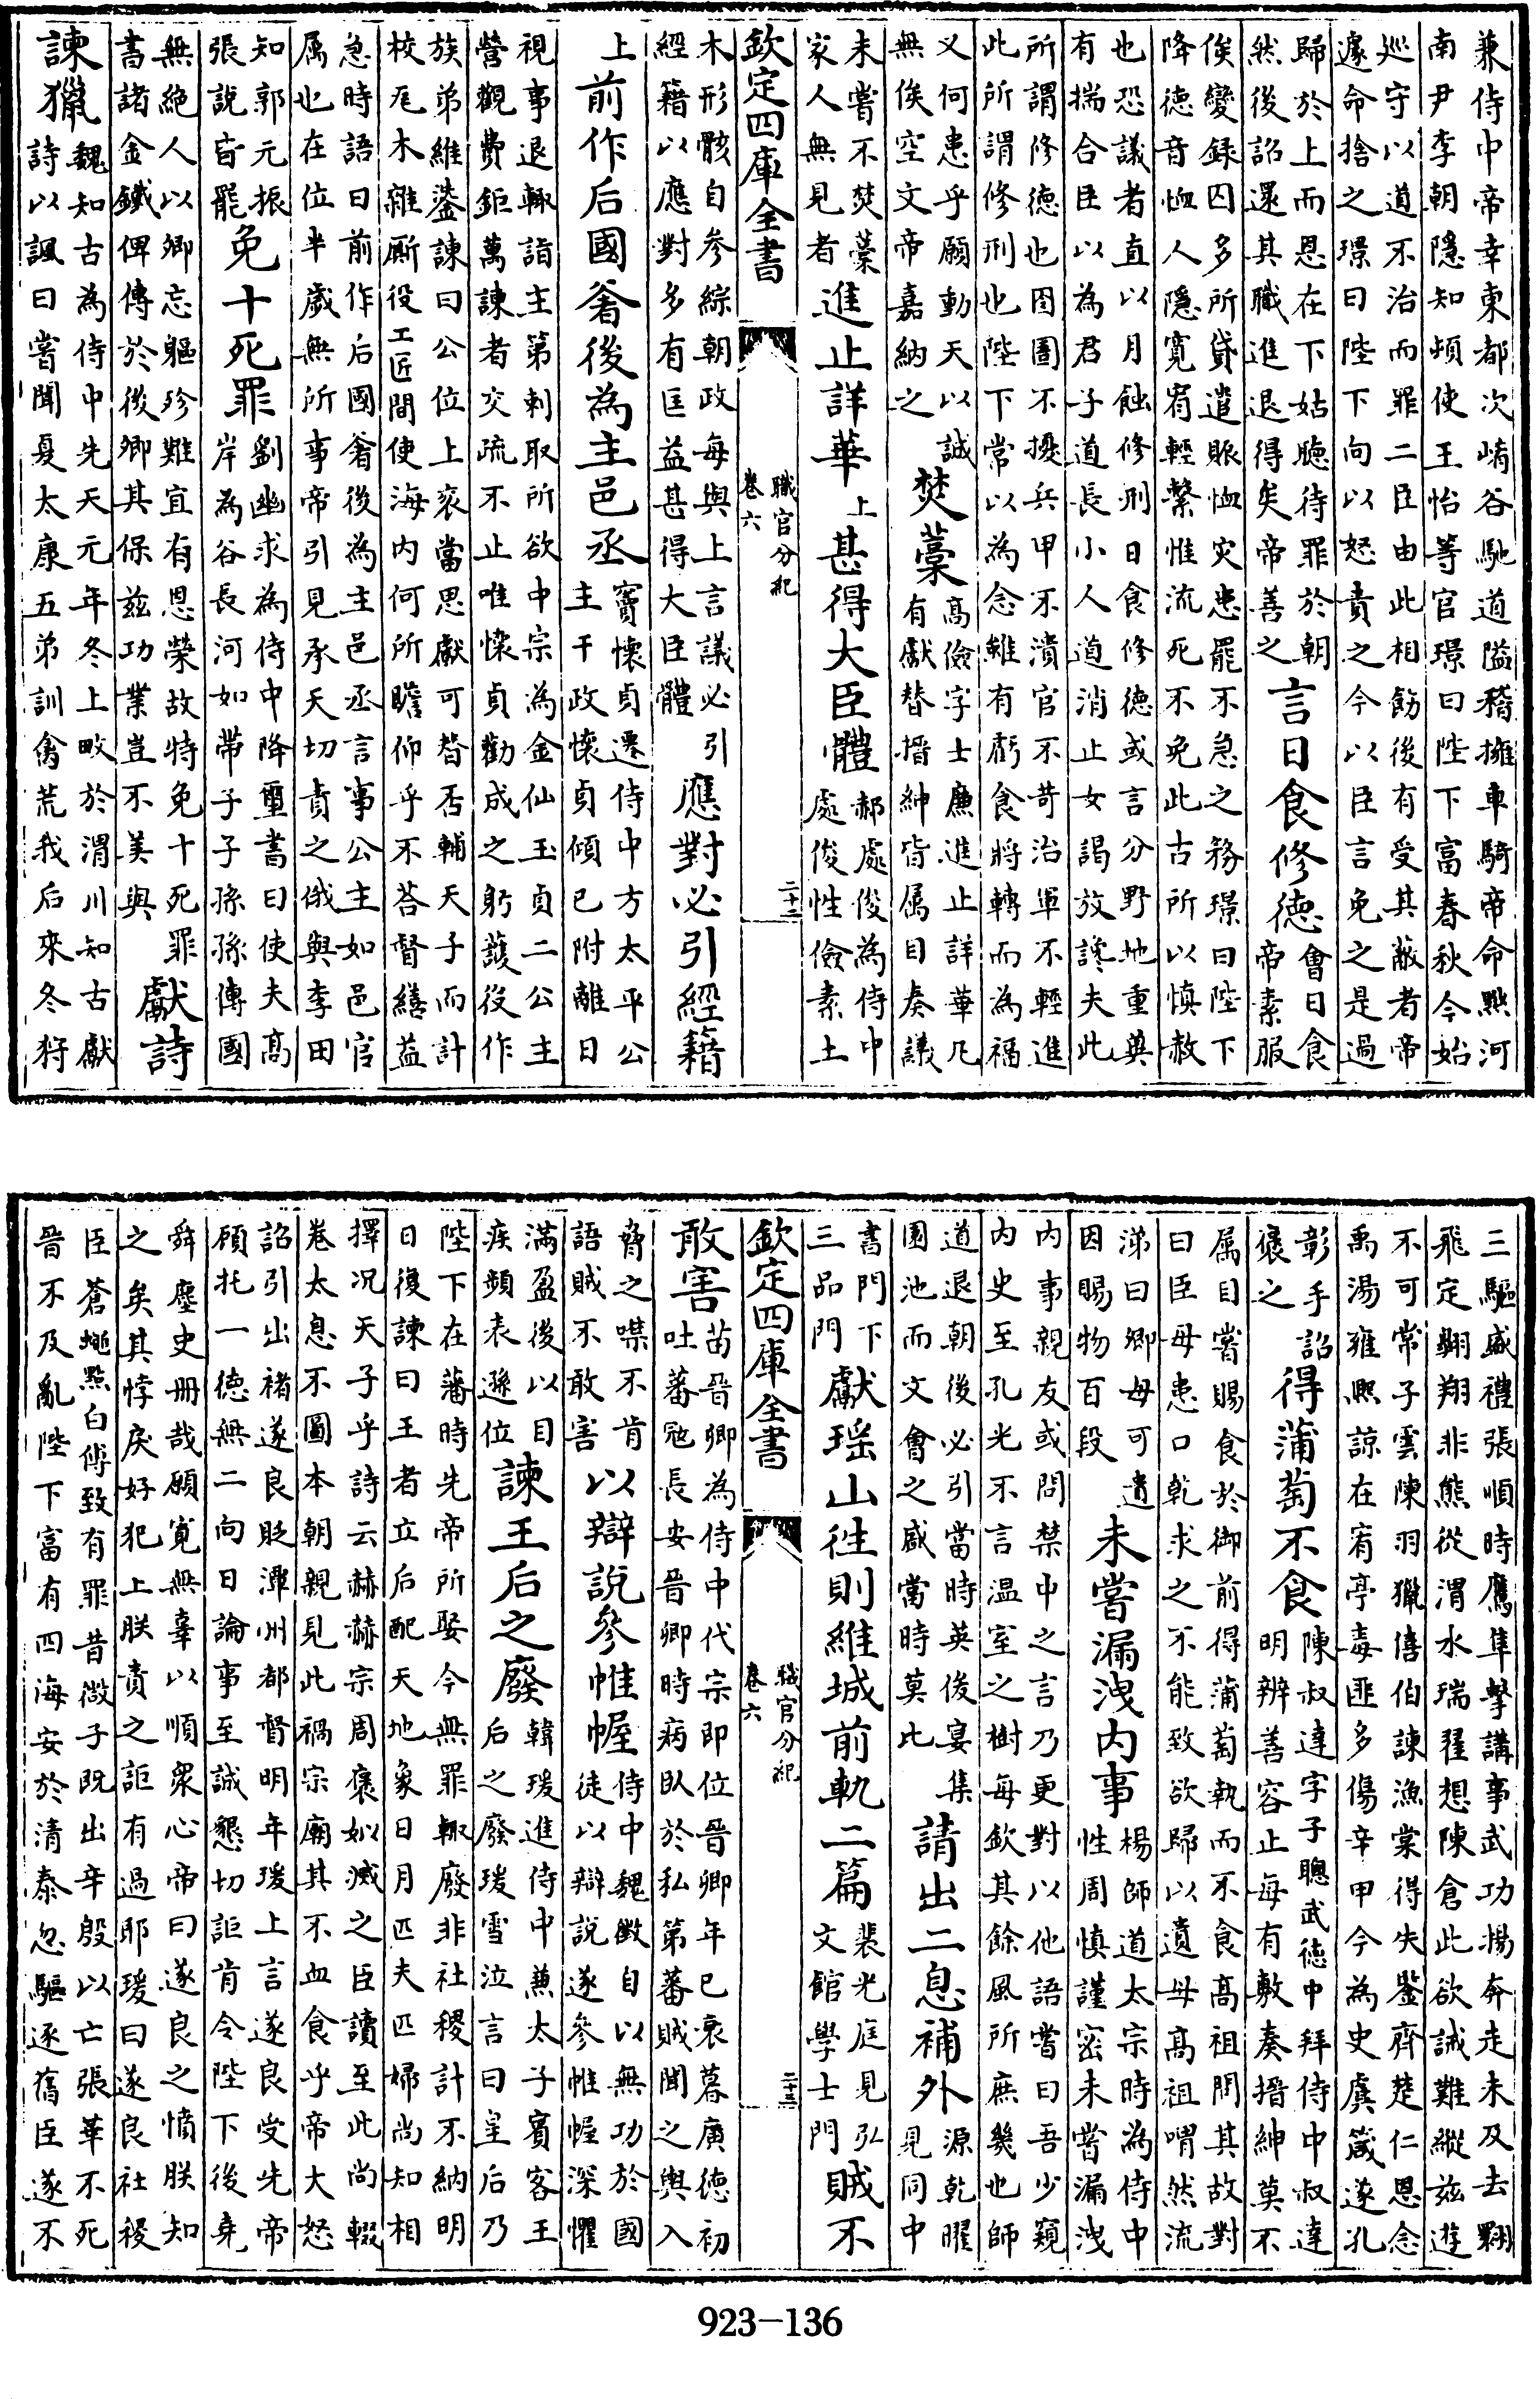 兼侍中帝幸東都次崤谷馳道隘稽擁車騎帝命黜河
南尹李朝隱知頓使王怡等官璟曰陛下富春秋今始
巡守以道不治而罪二臣由此相飭後有受其蔽者帝
遽命捨之璟曰陛下向以怒責之今以臣言免之是過
歸於上而恩在下姑聽待罪於朝
然後詔還其職進退得矣帝善之
言日食修德
會日食
帝素服
俟變録囚多所貸遣賑恤灾患罷不急之務璟曰陛下
降德音恤人隱寛宥輕繫惟流死不免此古所以慎赦
也恐議者直以月蝕修刑日食修德或言分野地重冀
有揣合臣以為君子道長小人道消止女謁放讒夫此
所謂修德也囹圄不擾兵甲不瀆官不苛治軍不輕進
此所謂修刑也陛下常以為念雖有虧食將轉而為福
又何患乎願動天以誠
無俟空文帝嘉納之
焚藁
髙儉字士亷進止詳華凡
有獻替搢紳皆属目奏議
未嘗不焚藁
家人無見者
進止詳華
上
甚得大臣體
郝處俊為侍中
處俊性儉素土
欽定四庫全書
職官分紀
卷六
二十二
木形骸自參綜朝政每與上言議必引
經籍以應對多有匡益甚得大臣體
應對必引經籍
上
前作后國奢後為主邑丞
竇懷貞遷侍中方太平公
主干政懷貞傾已附離日
視事退輙詣主第刺取所欲中宗為金仙玉貞二公主
營觀費鉅萬諫者交疏不止唯懷貞勸成之躬護役作
族弟維鍌諫曰公位上衮當思獻可替否輔天子而計
校瓦木雜厮役工匠間使海内何所瞻仰乎不荅督繕益
急時語曰前作后國奢後為主邑丞言事公主如邑官
属也在位半歲無所事帝引見承天切責之俄與李田
知郭元振
張說皆罷
免十死罪
劉幽求為侍中降璽書曰使夫髙
岸為谷長河如帶子子孫孫傳國
無絶人以卿忘軀殄難宜有恩榮故特免十死罪
書諸金鐵俾傳於後卿其保兹功業豈不美與
獻詩
諫獵
魏知古為侍中先天元年冬上畋於渭川知古獻
詩以諷曰嘗聞夏太康五弟訓禽荒我后來冬狩
三驅盛禮張順時鷹隼擊講事武功揚奔走未及去翾
飛定翺翔非熊從渭水瑞翟想陳倉此欲誡難縱兹遊
不可常子雲陳羽獵僖伯諫漁棠得失鑒齊楚仁恩念
禹湯雍熙諒在宥亭毒匪多傷辛甲今為史虞箴遂孔
彰手詔
褒之
得蒲萄不食
陳叔達字子聰武徳中拜侍中叔達
明辨善容止每有敷奏搢紳莫不
属目嘗賜食於御前得蒲萄執而不食髙祖問其故對
曰臣母患口乾求之不能致欲歸以遺母髙祖喟然流
涕曰卿母可遺
因賜物百段
未嘗漏洩内事
楊師道太宗時為侍中
性周慎謹密未嘗漏洩
内事親友或問禁中之言乃更對以他語嘗曰吾少窺
内史至孔光不言温室之樹每欽其餘風所庶幾也師
道退朝後必引當時英俊宴集
園池而文會之盛當時莫比
請出二息補外
源乾曜
見同中
書門下
三品門
獻瑶山往則維城前軌二篇
裴光庭見弘
文館學士門
賊不
欽定四庫全書
職官分紀
卷六
二十三
敢害
苗晉卿為侍中代宗即位晉卿年已衰暮廣徳初
吐蕃冦長安晉卿時病臥於私第蕃賊聞之輿入
脅之噤不肯
語賊不敢害
以辯說參帷幄
侍中魏徵自以無功於國
徒以辯説遂參帷幄深懼
滿盈後以目
疾頻表遜位
諫王后之廢
韓瑗進侍中兼太子賓客王
后之廢瑗雪泣言曰皇后乃
陛下在藩時先帝所娶今無罪輙廢非社稷計不納明
日復諫曰王者立后配天地象日月匹夫匹婦尚知相
擇况天子乎詩云赫赫宗周褒姒滅之臣讀至此尚輟
巻太息不圖本朝親見此禍宗廟其不血食乎帝大怒
詔引出禇遂良貶潭州都督明年瑗上言遂良受先帝
顧托一徳無二向日論事至誠懇切詎肯令陛下後堯
舜塵史冊哉願寛無辜以順衆心帝曰遂良之情朕知
之矣其悖戾好犯上朕責之詎有過耶瑗曰遂良社稷
臣蒼蠅㸃白傅致有罪昔微子既出辛殷以亡張華不死
晉不及亂陛下富有四海安於清泰忽驅逐舊臣遂不
923-136